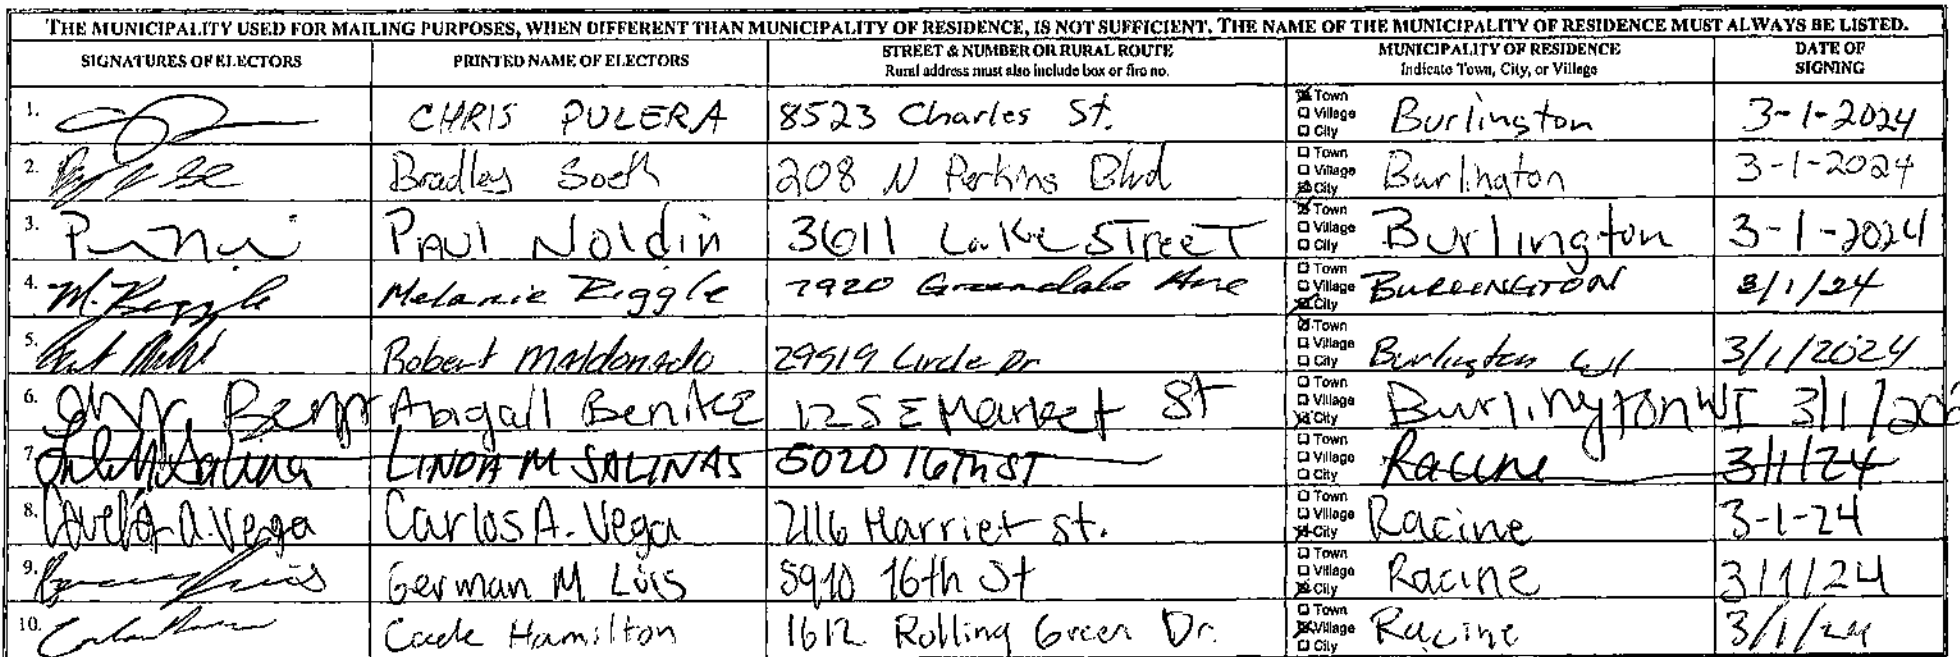 THE MUNICIPALITY USED FOR MAILING PURPOSES, WHEN DIFFERENT THAN MUNICIPALITY OF RESIDENCE, IS NOT SUFFICIENT. THE NAME OF THE MUNICIPALITY OF RESIDENCE MUST ALWAYS BE LISTED.
SIGNATURES OF ELECTORS PRINTED NAME OF ELECTORS STREET & NUMBER OR RURAL ROUTE MUNICIPALITY OF RESIDENCE DATE OF
Rural address must also include box or fire no. Indicate Town, City, or Village SIGNING
1. CHRIS PULERA 8523 Charles St. Town Village City Burlington 3-1-2024
2. Bradley 208 N Perkins Blvd Town Village City Burlington 3-1-2024
3. PAUL Noldin 3611 Lake STreeT Town Village City Burlington 3-1-2024
4. M. Riggle Melanie Riggle 7920 Greendale Ave Town Village City BURLINGTON 3/1/24
5. Robert Maldonado 29519 Circle Dr Town Village City Burlington WI 3/1/2024
6. Abigail Benitez 125 E Market St Town Village City Burlington WI 3/1/202
7. Linda M Salinas LINDA M SALINAS 5020 16Th ST Town Village City Racine 3/1/24
8. A. Vega Carlos A. Vega 2116 Harriet St. Town Village City Racine 3-1-24
9. German M Luis 5910 16th St Town Village City Racine 3/1/24
10. Cade Hamilton 1612 Rolling Green Dr. Town Village City Racine 3/1/24